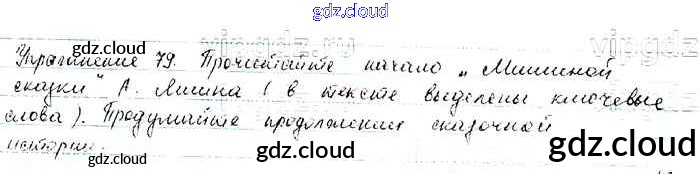 gdz.cloud
Упражнение 79. Прочитайте начало „Мишиной
сказки" А. Лисина (в тексте выделены ключевые
слова). Продумайте продолжение сказочной
истории.
gdz.cloud
vipgdz
gdz.cloud
gdz.cloud
gdz.cloud
gdz.cloud
gdz.cloud